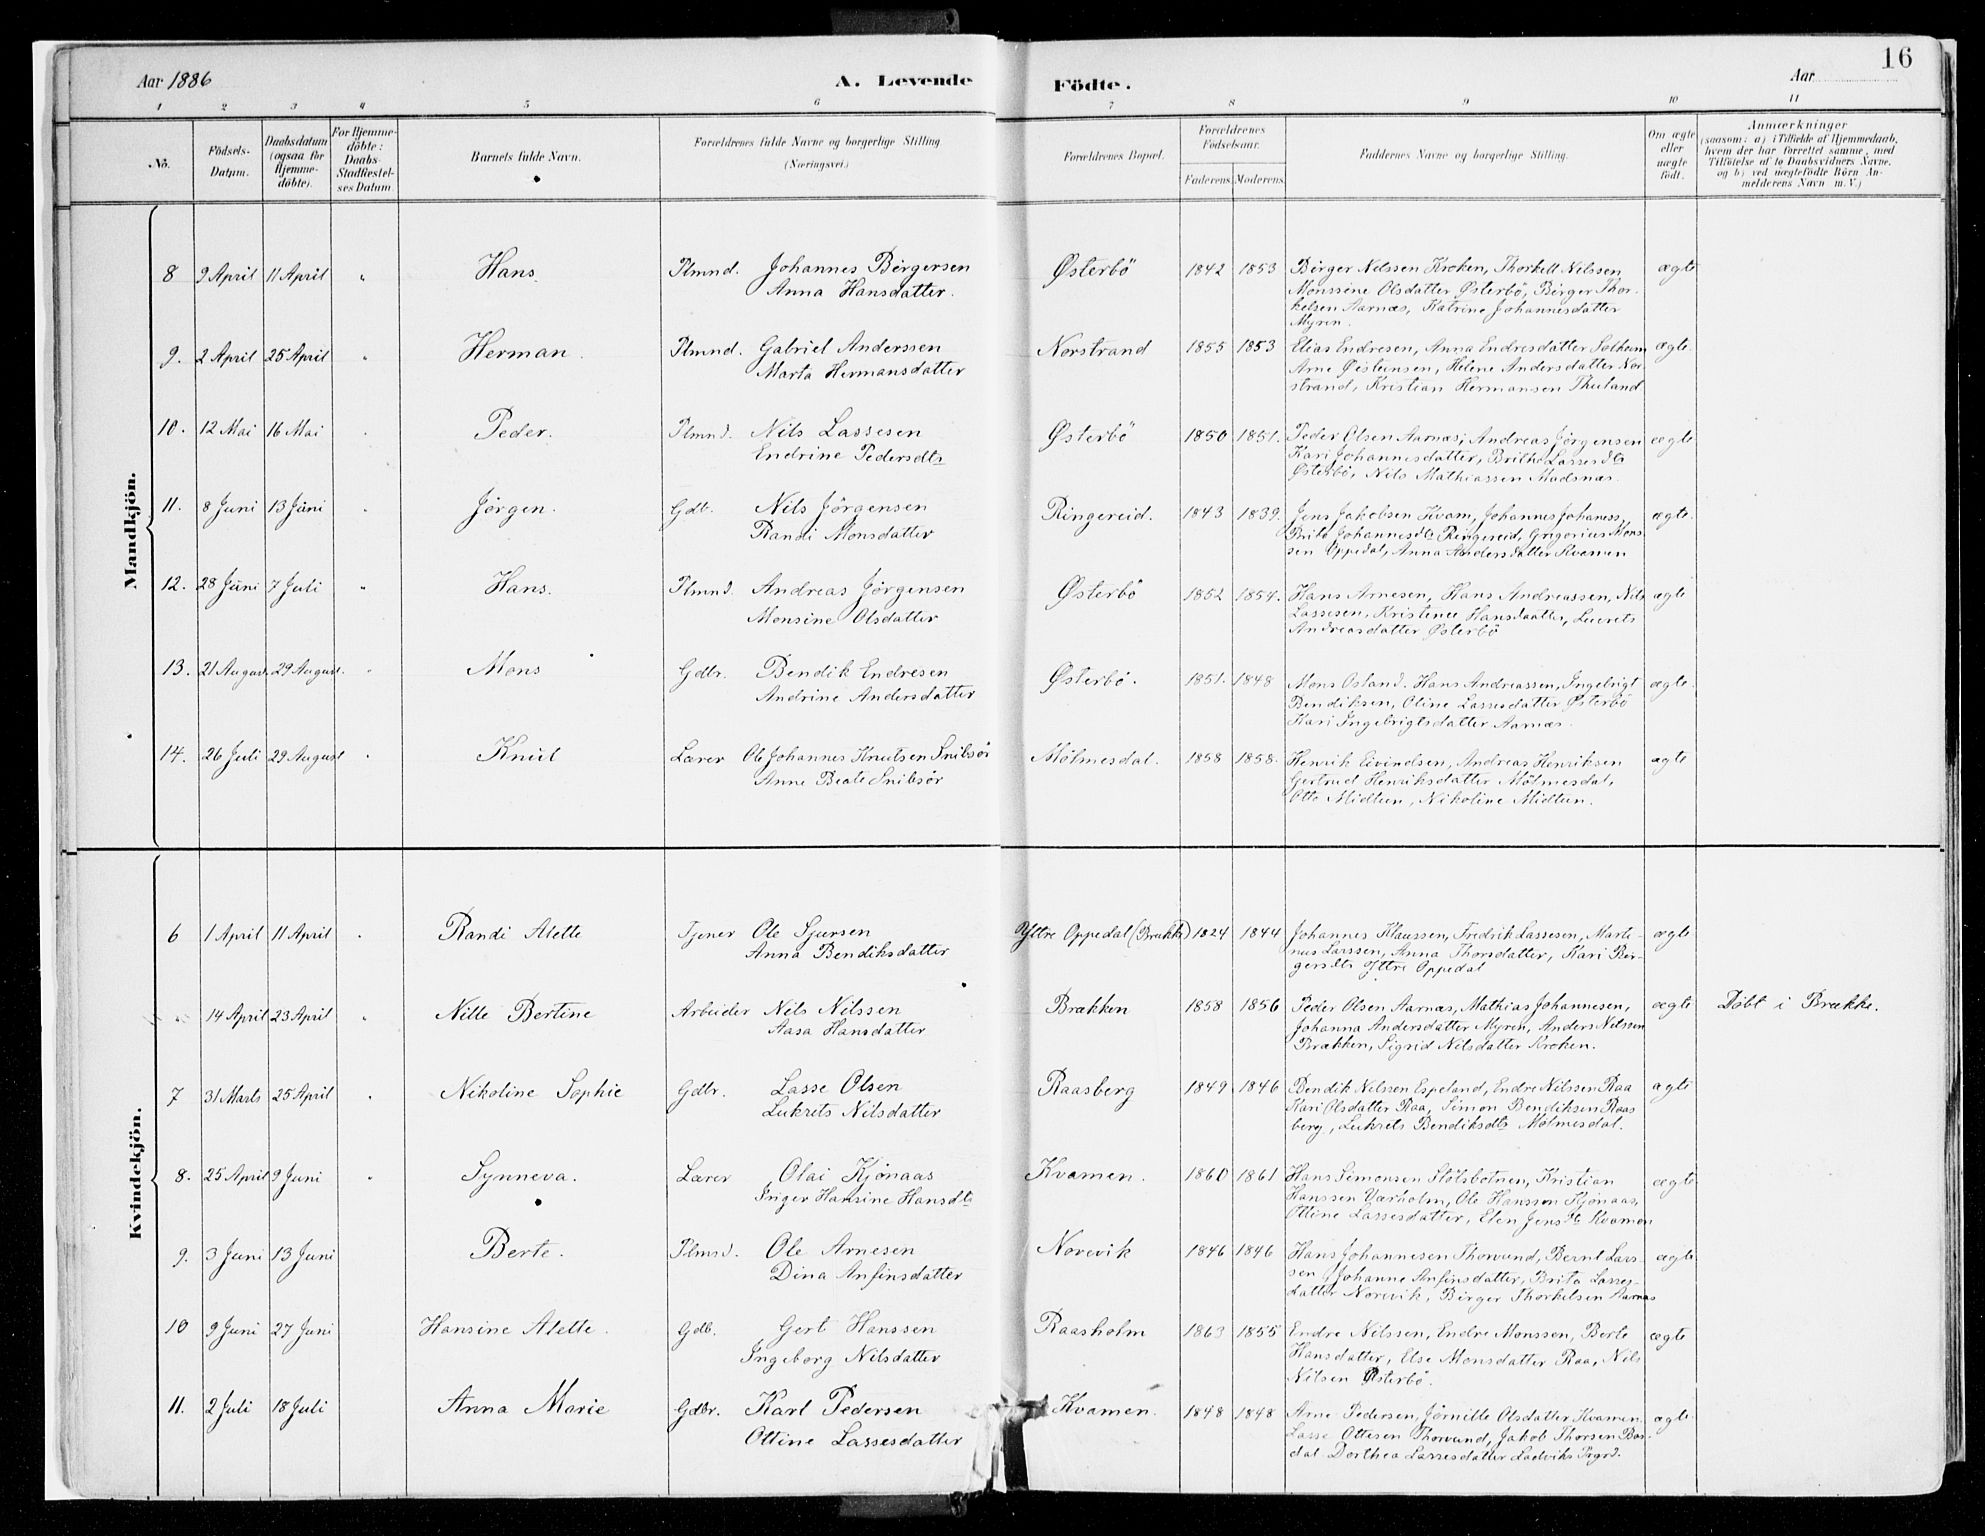 16
Aar 1886 A. Levende Födte. Aar
1 2 3 4 5 6 7 8 9 10 11
No. Födsels-Datum. Daabsdatum (ogsaa for Hjemme-döbte). For Hjemme-döbte: Daabs-Stadfæstel-ses Datum Barnets fulde Navn. Forældrenes fulde Navne og borgerlige Stilling (Næringsvei.) Forældrenes Bopæl. Forældrenes Födselsaar. Faderens Moderens Faddernes Navne og borgerlige Stilling. Om ægte eller uægte födt. Anmærkninger (saasom: a) i Tilfælde af Hjemmedaab, hvem der har forrettet samme, med Tilföielse af to Daabsvidners Navne, og b) ved uægtefödte Börn An-melderens Navn m. V.)
Mandkjön.
8 9 April 11 April " Hans. Plmnd. Johannes Børgersen Østerbö 1842 1853 Börger Nilssen Kroken, Thorkell Nilssen ægte
Anna Hansdatter. Monssine Olsdatter Østerbö, Börger Thor-
kelsen Aarnæs, Katrine Johannesdatter
Myren.
9. 2 April 25 April " Herman. Plmnd. Gabriel Anderssen Norstrand 1855 1853 Elias Endresen, Anna Endresdatter Solheim ægte.
Marta Hermansdatter Arne Øisteinsen, Helene Andersdatter Nor-
strand, Kristian Hermansen Thuland
10. 12 Mai 16 Mai Peder. Plmnd. Nils Lassesen Østerbö 1850 1851. Peder Olsen Aarnæs, Andreas Jørgensen ægte
Endrine Pedersdtr Kari Johannesdatter, Britha Lassesdtr
Østerbö, Nils Mathiassen Madsnæs.
11. 8 Juni 13 Juni " Jørgen. Gdb. Nils Jørgensen Ringereid. 1843 1839. Jens Jakobsen Kvam, Johannes Johaness. ægte.
Randi Monsdatter Brita Johannesdtr Ringereid, Grigorius Mons-
sen Oppedal, Anna Andersdatter Kvamen
12. 28 Juni 7 Juli " Hans. Plmnd. Andreas Jørgensen Østerbö 1852 1854. Hans Arnesen, Hans Andreassen, Nils ægte
Monsine Olsdatter Lassesen, Kristence Hansdaatter, Lucrets
Andreasdatter Østerbö
13. 21 August 29 August. " Mons Gdbr. Bendik Endresen Østerbö. 1851. 1848 Mons Osland. Hans Andreassen, Ingebrigt ægte.
Andrine Andersdatter Bendiksen, Oline Lassesdatter Østerbö
Kari Ingebrigtsdatter Aarnæs.
14. 26 Juli 29 August " Knut Lærer Ole Johannes Knutsen Snibsør Mölmesdal. 1858 1858. Henrik Eivindsen, Andreas Henriksen ægte
Anne Beate Snibsør Gertrud Henriksdatter Mölmesdal,
Otto Midtun, Nikoline Midtun.
Kvindekjön.
6 1 April 11 April " Randi Alette Tjener Ole Sjursen Yttre Oppedal (Brække) 1824 1844 Johannes Klaussen, Fredrik Lassesen, Marti- ægte
Anna Bendiksdatter nus Larssen, Anna Thorsdatter, Kari Bør-
gersdtr Yttre Oppedal
14 April 23 April " Nille Bertine Arbeider Nils Nilssen Brækken 1858 1856 Peder Olsen Aarnæs, Mathias Johannesen, ægte Döbt i Brække.
Aasa Hansdatter Johanna Andersdatter Myren, Anders Nilssen
Brækken, Sigrid Nilsdatter Kroken.
7 31 Marts 25 April " Nikoline Sophie Gdbr. Lasse Olsen Raasberg 1849 1846 Bendik Nilssen Espeland, Endre Nilssen Raa ægte
Lukrets Nilsdatter Kari Olsdatter Raa, Simon Bendiksen Raas
berg, Lukrets Bendiksdtr Mölmesdal.
8. 25 April 9 Juni " Synneva. Lærer Olai Kjönaas Kvamen. 1860 1861 Hans Simonsen Stölsbotnen, Kristian ægte
Inger Hansine Hansdtr Hanssen Værholm, Ole Hansson Kjönaas,
Ottine Lassesdatter, Elen Jensdtr Kvamen
9. 3 Juni 13 Juni Berte. Plmnd. Ole Arnesen Norevik 1846 1846 Hans Johannesen Thorvund, Bernt Lars- ægte
Dina Anfinsdatter sen, Johanne Anfinsdatter, Brita Lasses-
datter Norevik, Börger Thorkelsen Aarnæs
10 9 Juni 27 Juni Hansine Alette. Gdb. Gert Hanssen Raasholm 1863 1855 Endre Nilssen, Endre Monssen, Berte ægte
Ingeborg Nilsdatter Hansdatter, Else Monsdatter Raa, Nils
Nilsen Østerbö.
11. 2 Juli 18 Juli Anna Marie Gdbr. Karl Pedersen Kvamen. 1848 1848 Arne Pedersen, Jörnille Olsdatter Kvamen. ægte.
Ottine Lassesdatter Lasse Ottesen Thorvund, Jakob Thorsen Bor-
dal Dorthea Lassesdatter Ladviks Prgrd.